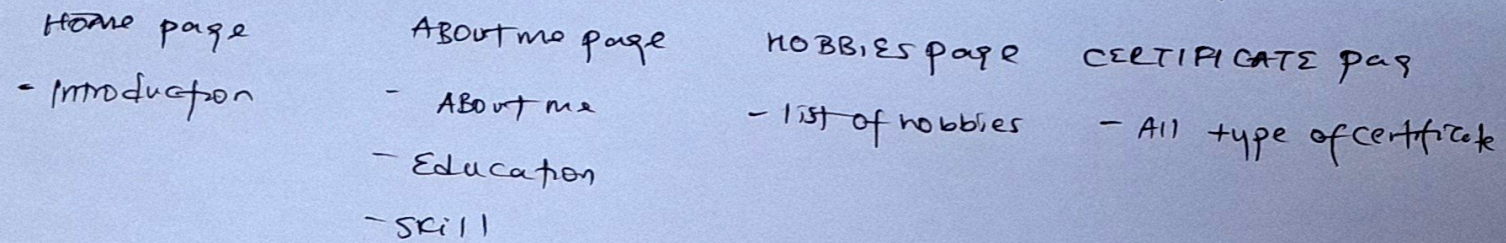 Home page
- Introduction
ABout me page
- ABout me
- Education
- Skill
HOBBIES page
- list of hobbies
CERTIFICATE pag
- All type of certificate